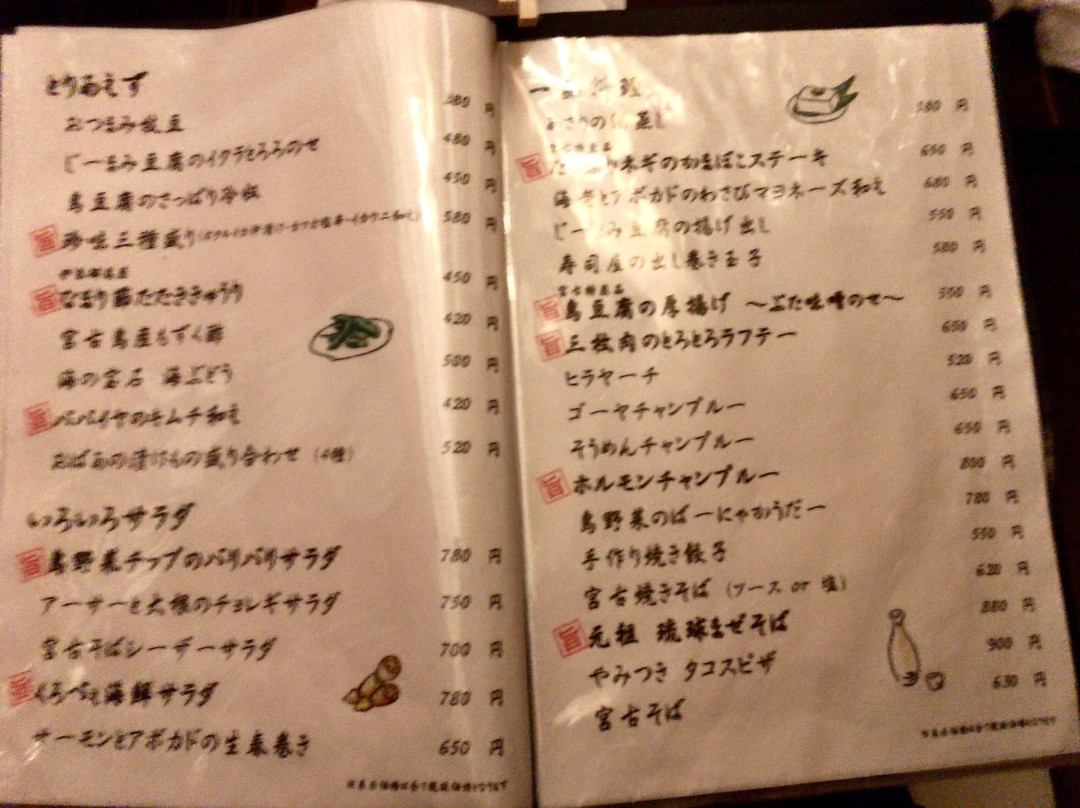 とりあえず
おつまみ枝豆 380 円
じーまみ豆腐のイクラとろろのせ 480 円
島豆腐のさっぱり冷奴 450 円
旨 珍味三種盛り 580 円
旨 なまり節たたききゅうり 450 円
宮古島産もずく酢 420 円
海の宝石 海ぶどう 500 円
旨 パパイヤのキムチ和え 420 円
おばあの漬けもの盛り合わせ (4種) 520 円
いろいろサラダ
旨 島野菜チップのパリパリサラダ 780 円
アーサーと大根のチョレギサラダ 750 円
宮古そばシーザーサラダ 700 円
旨 くろべぇ海鮮サラダ 780 円
サーモンとアボカドの生春巻き 650 円
一品料理
あさりの 蒸し 580 円
旨 ネギのかまぼこステーキ 650 円
海老とアボカドのわさびマヨネーズ和え 680 円
じーまみ豆腐の揚げ出し 550 円
寿司屋の出し巻き玉子 580 円
宮古特産品
旨 島豆腐の厚揚げ 〜ぶた味噌のせ〜 550 円
旨 三枚肉のとろとろラフテー 650 円
ヒラヤーチ 520 円
ゴーヤチャンプルー 650 円
そうめんチャンプルー 650 円
旨 ホルモンチャンプルー 800 円
島野菜のばーにゃかうだー 780 円
手作り焼き餃子 550 円
宮古焼きそば (ソース or 塩) 620 円
旨 元祖 琉球まぜそば 880 円
やみつき タコスピザ 900 円
宮古そば 630 円